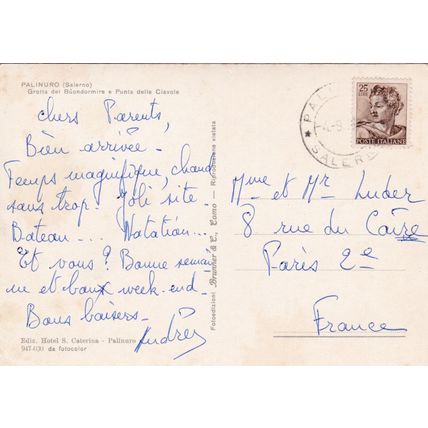 PALINURO (Salerno)
Grotta del Buondormire e Punta delle Ciavole
Chers Parents,
Bien arrivée -
Temps magnifique, chaud
sans trop - Joli site -
Bateau ... Natation ...
Et vous ? Bonne semai
ne et bon week-end -
Bons baisers -
Edit. Hotel S. Caterina - Palinuro
947-030 da fotocolor
Fotoedizioni Brunner & C., Como - Riproduzione vietata
SALER
25
POSTE ITALIANE
Mme et Mr Luder
8 rue du Caire
Paris 2e
France